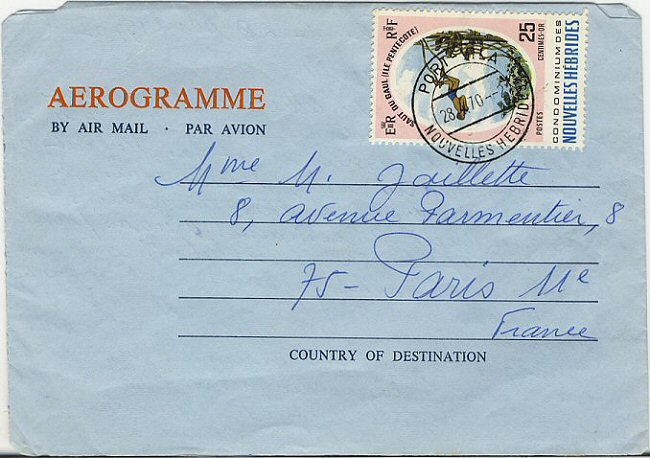 AEROGRAMME
BY AIR MAIL · PAR AVION
E II R SAUT DU GAUL (ILE PENTECÔTE) RF
25
CENTIMES-OR
POSTES
CONDOMINIUM DES
NOUVELLES HÉBRIDES
PORT VILA
28 70
NOUVELLES HEBRIDES
Mme M. Jaillette
8, avenue Parmentier, 8
75- Paris 11e
France
COUNTRY OF DESTINATION